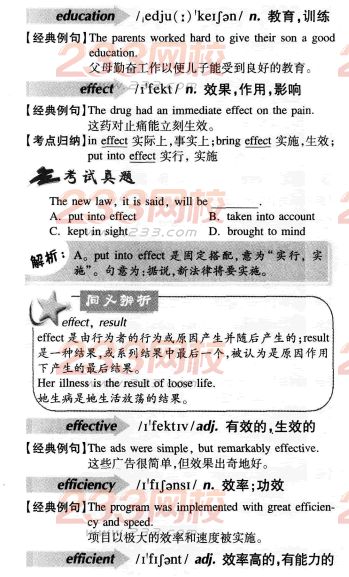 education /ˌedju(ː)ˈkeɪʃən/ n. 教育,训练
【经典例句】The parents worked hard to give their son a good
education.
父母勤奋工作以便儿子能受到良好的教育。
effect /ɪˈfekt/ n. 效果,作用,影响
【经典例句】The drug had an immediate effect on the pain.
这药对止痛能立刻生效。
【考点归纳】in effect 实际上,事实上;bring effect 实施,生效;
put into effect 实行, 实施
考试真题
The new law, it is said, will be ______.
A. put into effect B. taken into account
C. kept in sight D. brought to mind
解析: A。put into effect 是固定搭配,意为“实行, 实
施”。句意为:据说,新法律将要实施。
同义辨析
effect, result
effect 是由行为者的行为或原因产生并随后产生的;result
是一种结果,或系列结果中最后一个,被认为是原因作用
下产生的最后结果。
Her illness is the result of loose life.
她生病是她生活放荡的结果。
effective /ɪˈfektɪv/ adj. 有效的,生效的
【经典例句】The ads were simple, but remarkably effective.
这些广告很简单,但效果出奇地好。
efficiency /ɪˈfɪʃənsɪ/ n. 效率;功效
【经典例句】The program was implemented with great efficien-
cy and speed.
项目以极大的效率和速度被实施。
efficient /ɪˈfɪʃənt/ adj. 效率高的,有能力的
233网校
www.233.com